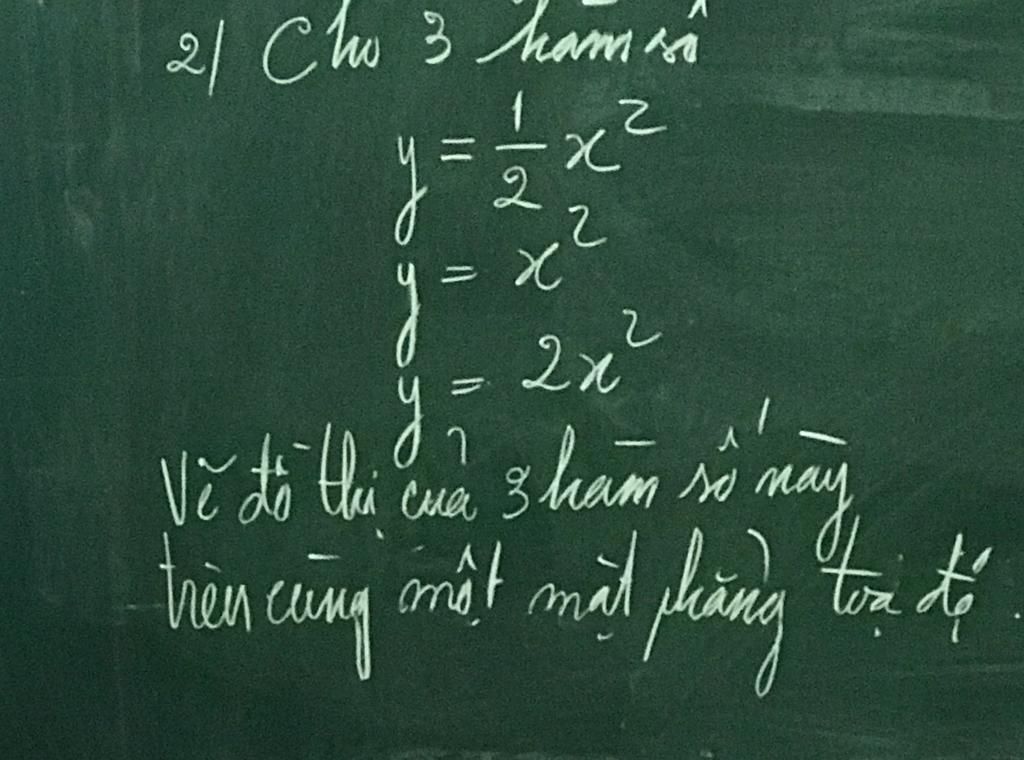 2/ Cho 3 hàm số
y = 1/2 x²
y = x²
y = 2x²
Vẽ đồ thị của 3 hàm số này
trên cùng một mặt phẳng tọa độ.